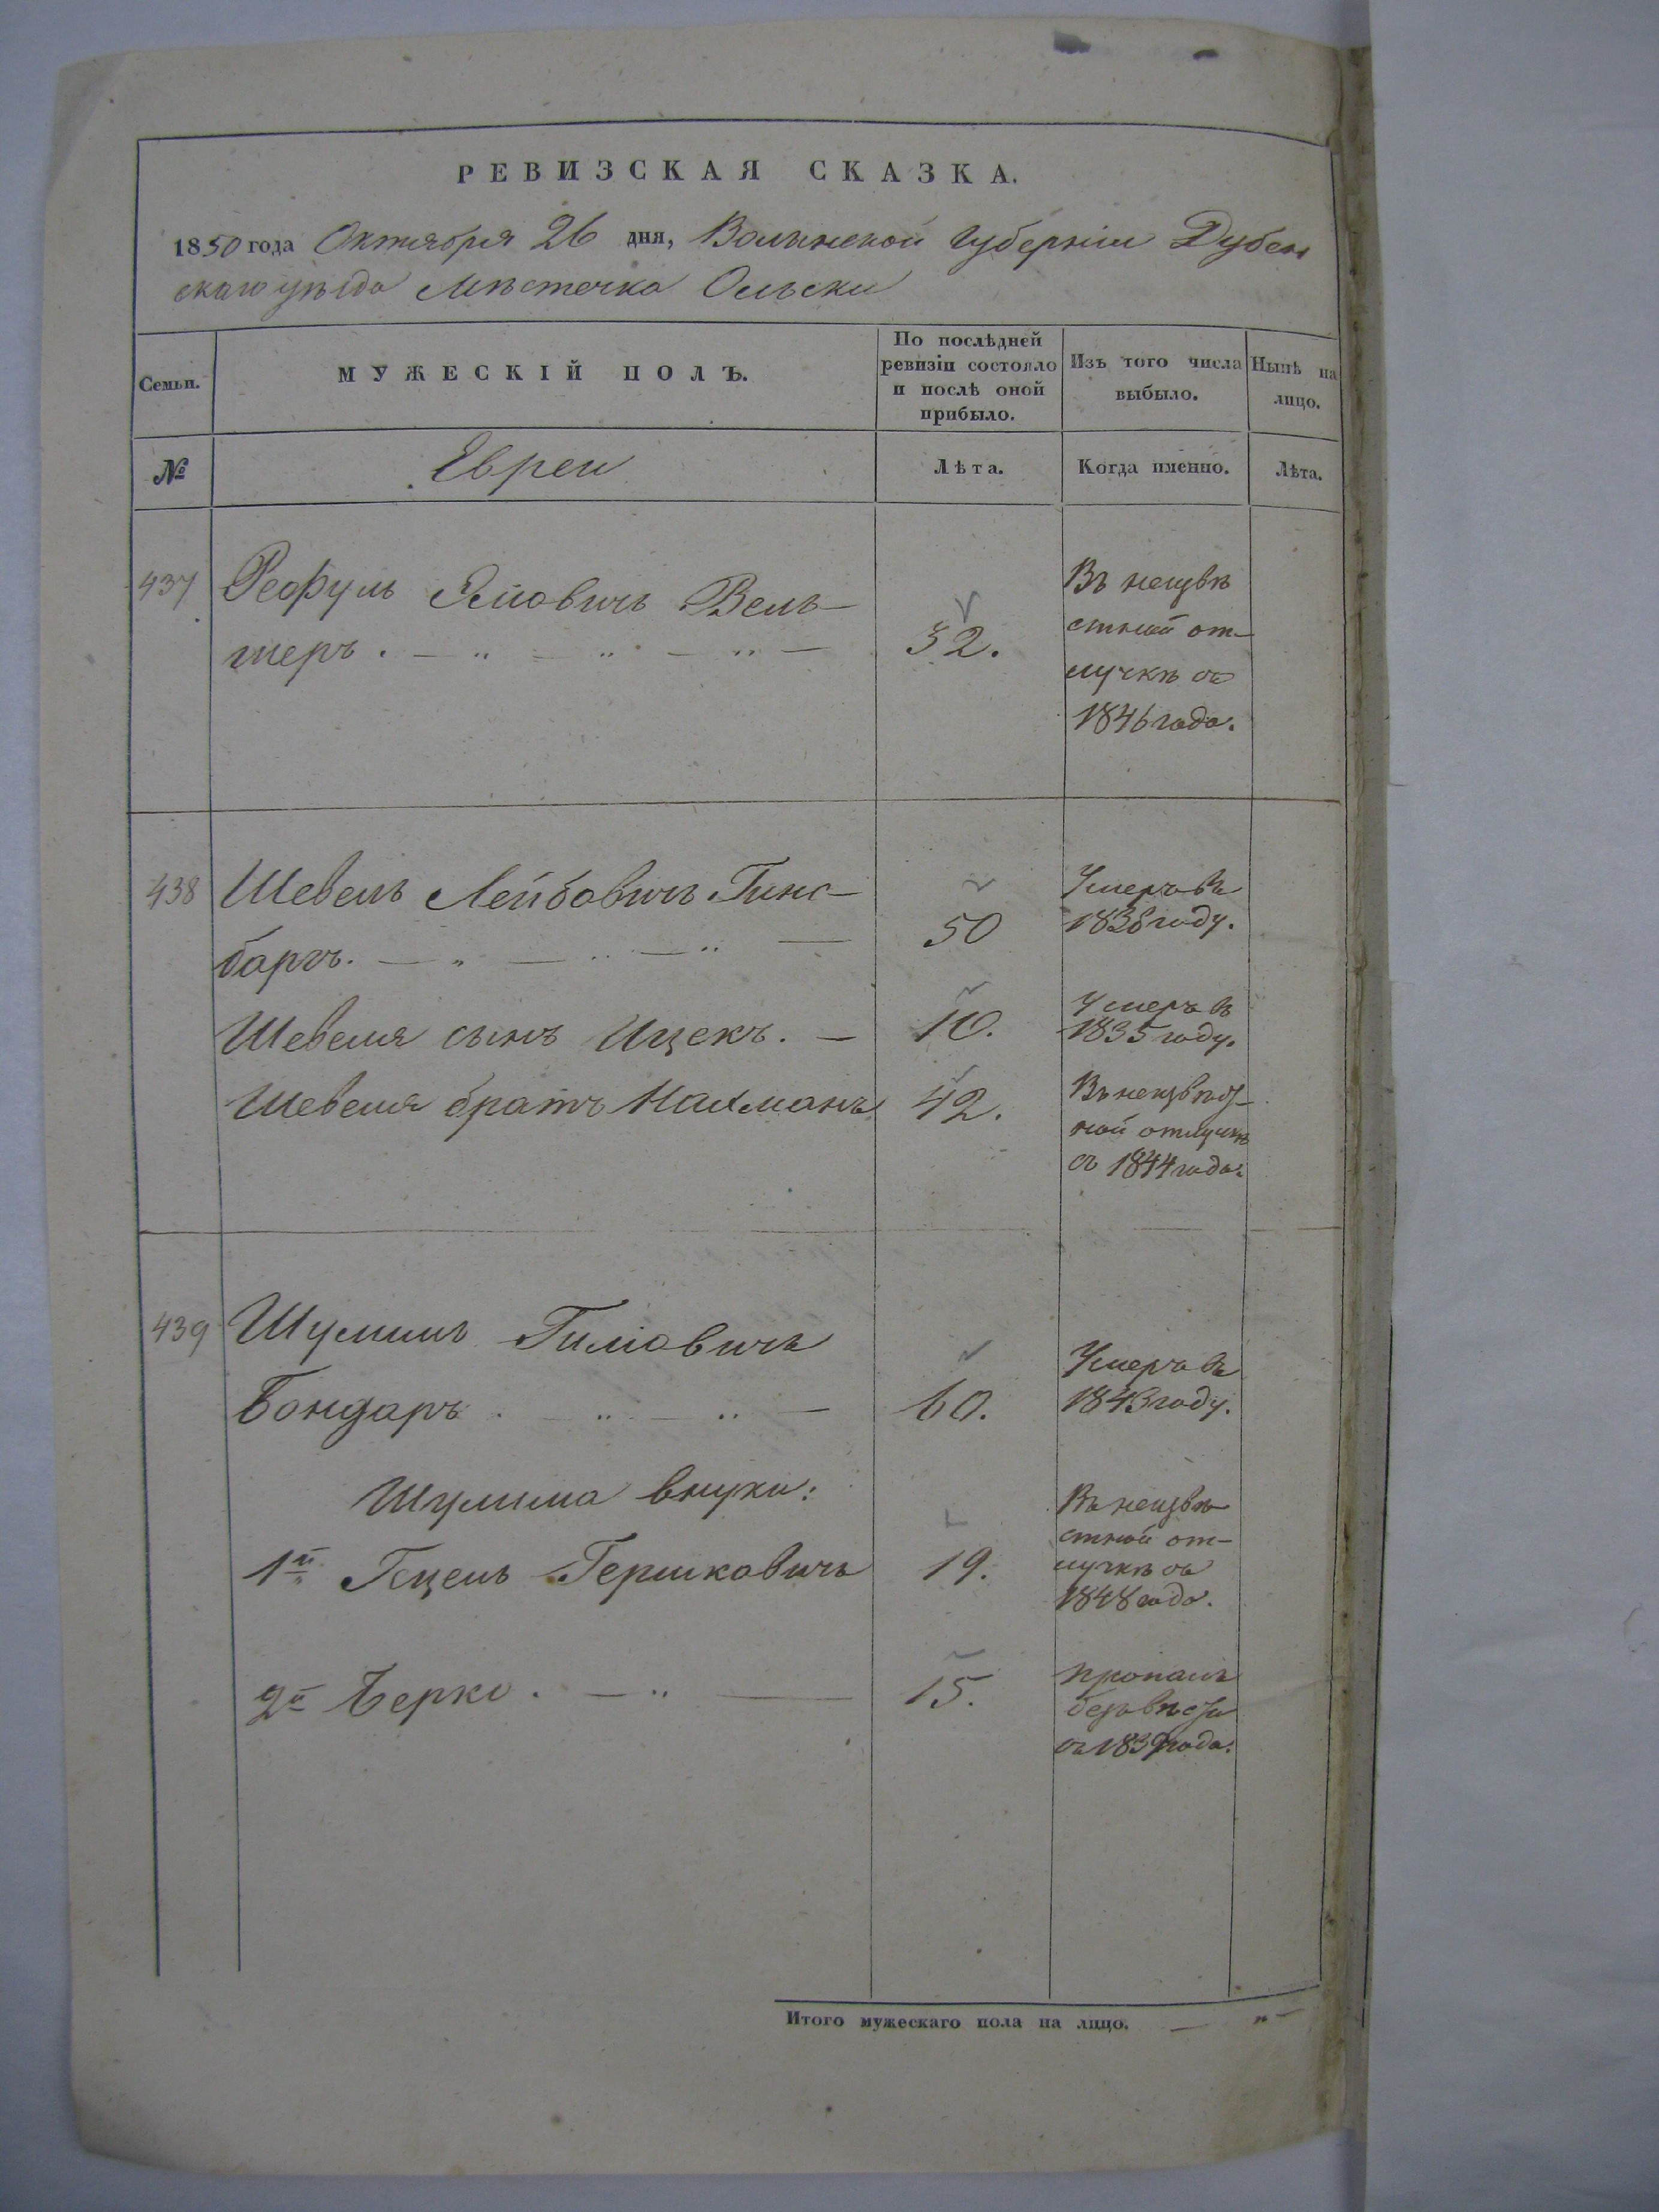 РЕВИЗСКАЯ СКАЗКА.
1850 года Октября 26 дня, Волынской Губерніи Дубен
скаго уѣзда Мѣстечка Олыки
Семьи.
МУЖЕСКІЙ ПОЛЪ.
По послѣдней
ревизіи состояло
и послѣ оной
прибыло.
Изъ того числа
выбыло.
Нынѣ на
лицо.
№
Евреи
Лѣта.
Когда именно.
Лѣта.
437
Рефуль Вель-
теръ.
32.
Въ неизвѣ
стной от-
лучкѣ съ
1846 года.
438
Шевель Лейбовичъ Гинс-
баргъ.
50
Умеръ въ
1838 году.
Шевеля сынъ Ицекъ.
10.
Умеръ въ
1835 году.
Шевеля братъ Нахманъ
42.
Въ неизвѣст-
ной отлучкѣ
съ 1844 года.
439
Шулимъ
Бондаръ.
60.
Умеръ въ
1843 году.
Шулима внуки:
1й Гецель Гершковичъ
19.
Въ неизвѣ
стной от-
лучкѣ съ
1848 года.
2й Берко.
15.
Пропалъ
безъ вѣсти
съ 1839 года.
Итого мужескаго пола на лицо.